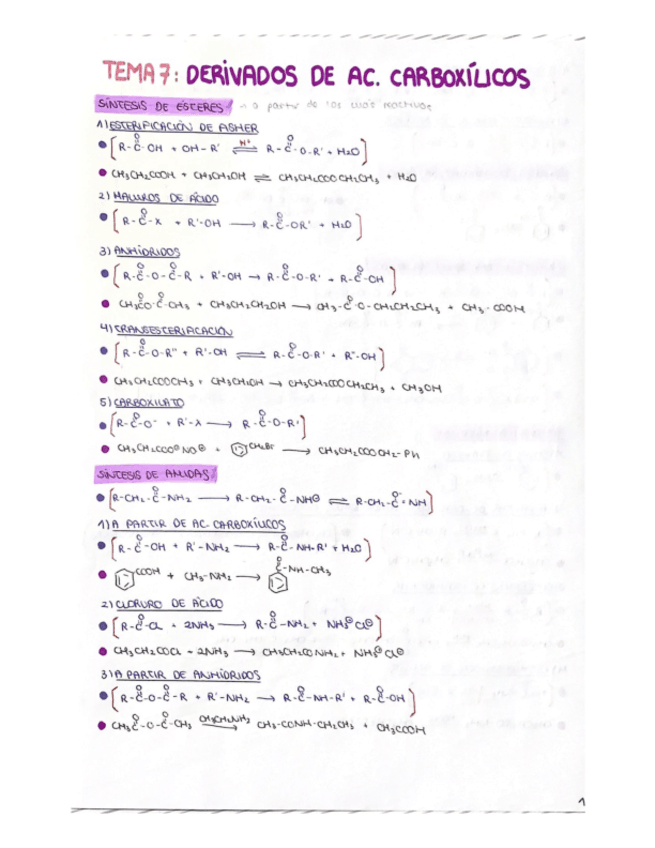 TEMA 7: DERIVADOS DE AC. CARBOXÍLICOS
SÍNTESIS DE ÉSTERES → a partir de los más reactivos
1) ESTERIFICACIÓN DE FISHER
[R-C(=O)-OH + OH-R' ⇌ (H⁺) R-C(=O)-O-R' + H₂O]
CH₃CH₂COOH + CH₃CH₂OH ⇌ CH₃CH₂COOCH₂CH₃ + H₂O
2) HALUROS DE ÁCIDO
[R-C(=O)-X + R'-OH → R-C(=O)-OR' + H₂O]
3) ANHÍDRIDOS
[R-C(=O)-O-C(=O)-R + R'-OH → R-C(=O)-O-R' + R-C(=O)-OH]
CH₃C(=O)O-C(=O)-CH₃ + CH₃CH₂CH₂OH → CH₃-C(=O)-O-CH₂CH₂CH₃ + CH₃-COOH
4) TRANSESTERIFICACIÓN
[R-C(=O)-O-R'' + R'-OH ⇌ R-C(=O)-O-R' + R''-OH]
CH₃CH₂COOCH₃ + CH₃CH₂OH → CH₃CH₂COOCH₂CH₃ + CH₃OH
5) CARBOXILATO
[R-C(=O)-O⁻ + R'-X → R-C(=O)-O-R']
CH₃CH₂COO⊖ Na⊕ + CH₂Br → CH₃CH₂COOCH₂-Ph
SÍNTESIS DE AMIDAS
[R-CH₂-C(=O)-NH₂ → R-CH₂-C(=O)-NH⊖ ⇌ R-CH₂-C(O⁻)=NH]
1) A PARTIR DE AC. CARBOXÍLICOS
[R-C(=O)-OH + R'-NH₂ → R-C(=O)-NH-R' + H₂O]
COOH + CH₃-NH₂ → C(=O)-NH-CH₃
2) CLORURO DE ÁCIDO
[R-C(=O)-Cl + 2NH₃ → R-C(=O)-NH₂ + NH₄⊕ Cl⊖]
CH₃CH₂COCl + 2NH₃ → CH₃CH₂CONH₂ + NH₄⊕ Cl⊖
3) A PARTIR DE ANHÍDRIDOS
[R-C(=O)-O-C(=O)-R + R'-NH₂ → R-C(=O)-NH-R' + R-C(=O)-OH]
CH₃C(=O)-O-C(=O)-CH₃ → (CH₃CH₂NH₂) CH₃-CONH-CH₂CH₃ + CH₃COOH
1